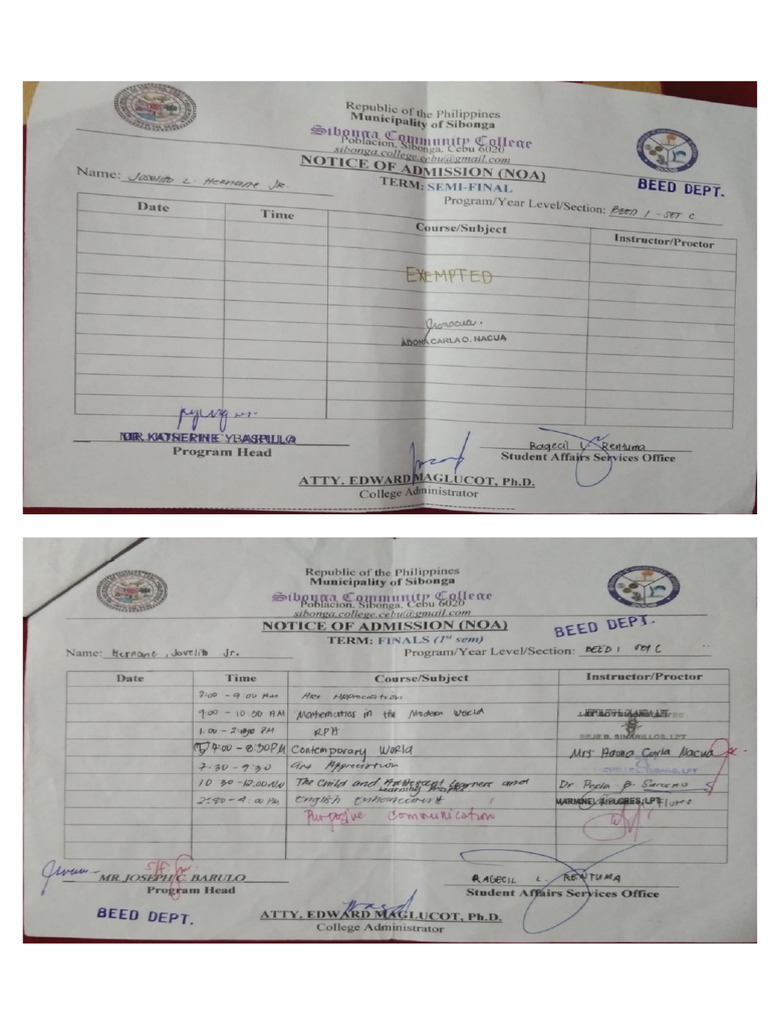 Republic of the Philippines
Municipality of Sibonga
Sibonga Community College
Poblacion, Sibonga, Cebu 6020
sibonga.college.cebu@gmail.com
NOTICE OF ADMISSION (NOA)
TERM: SEMI-FINAL
BEED DEPT.
Name: Joselito L. Hernane Jr.
Program/Year Level/Section: BEED 1 - SET C
Date Time Course/Subject Instructor/Proctor
EXEMPTED
ADONA CARLA O. NACUA
Program Head
Ragecil L. Rentuma
Student Affairs Services Office
ATTY. EDWARD MAGLUCOT, Ph.D.
College Administrator
Republic of the Philippines
Municipality of Sibonga
Sibonga Community College
Poblacion, Sibonga, Cebu 6020
sibonga.college.cebu@gmail.com
NOTICE OF ADMISSION (NOA)
TERM: FINALS (1st sem)
BEED DEPT.
Name: Hernane, Joselito Jr.
Program/Year Level/Section: BEED 1 SET C
Date Time Course/Subject Instructor/Proctor
Art Appreciation
9:00 - 10:30 AM Mathematics in the Modern World
RPH
Contemporary World Mrs. Adona Carla Nacua
7:30 - 9:30 Art Appreciation
The Child and Adolescent Learners and Learning
English Enhancement
Purposive Communication
MR. JOSEPH C. BARULO
Program Head
RAGECIL L. RENTUMA
Student Affairs Services Office
BEED DEPT.
ATTY. EDWARD MAGLUCOT, Ph.D.
College Administrator